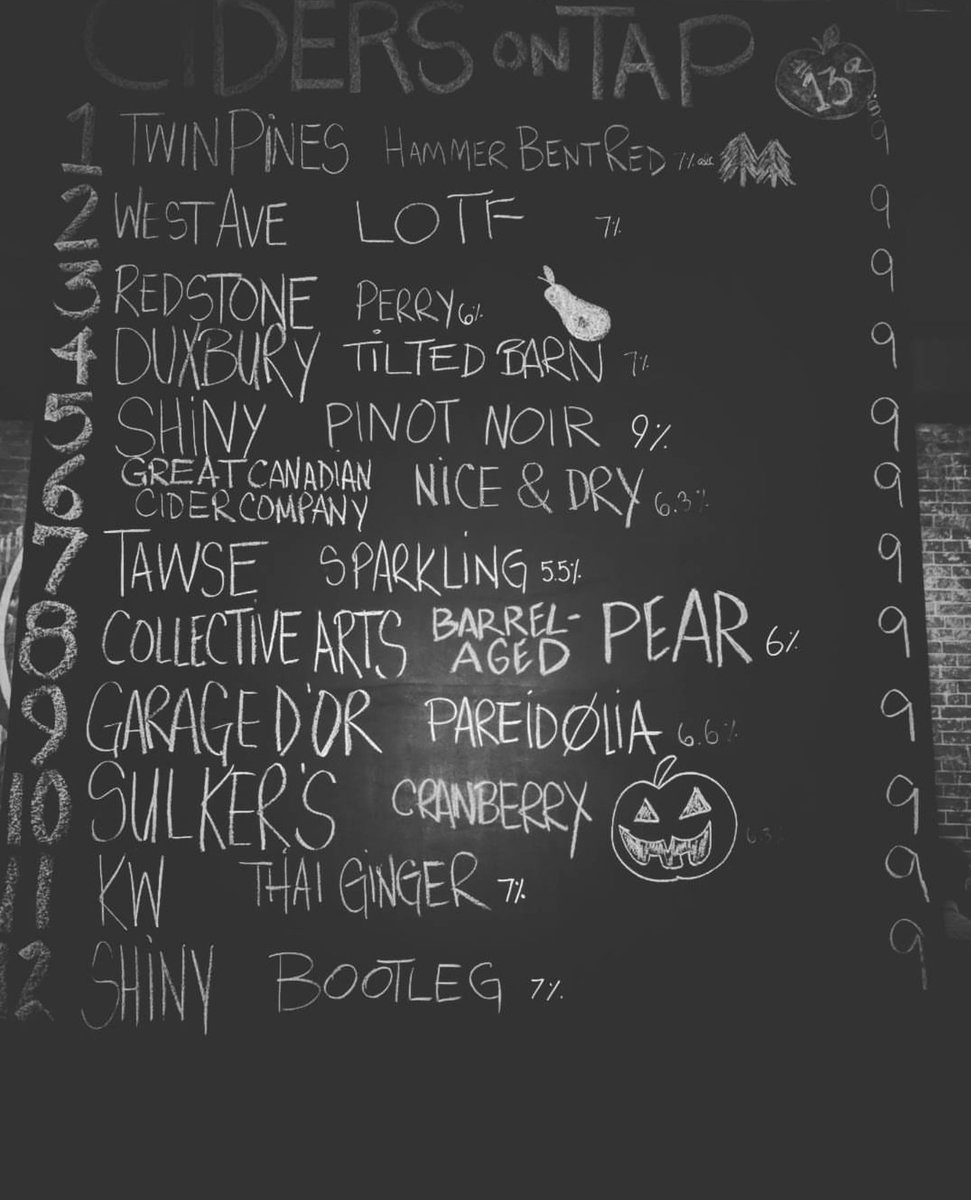 CIDERS ON TAP 13
1 TWIN PINES HAMMER BENT RED 7% 9
2 WEST AVE LOTF 7% 9
3 REDSTONE PERRY 6% 9
4 DUXBURY TILTED BARN 7% 9
5 SHINY PINOT NOIR 9% 9
6 GREAT CANADIAN CIDER COMPANY NICE & DRY 6.3% 9
7 TAWSE SPARKLING 5.5% 9
8 COLLECTIVE ARTS BARREL-AGED PEAR 6% 9
9 GARAGE D'OR PAREIDØLIA 6.6% 9
10 SULKER'S CRANBERRY 6.3 9
11 KW THAI GINGER 7% 9
12 SHINY BOOTLEG 7% 9